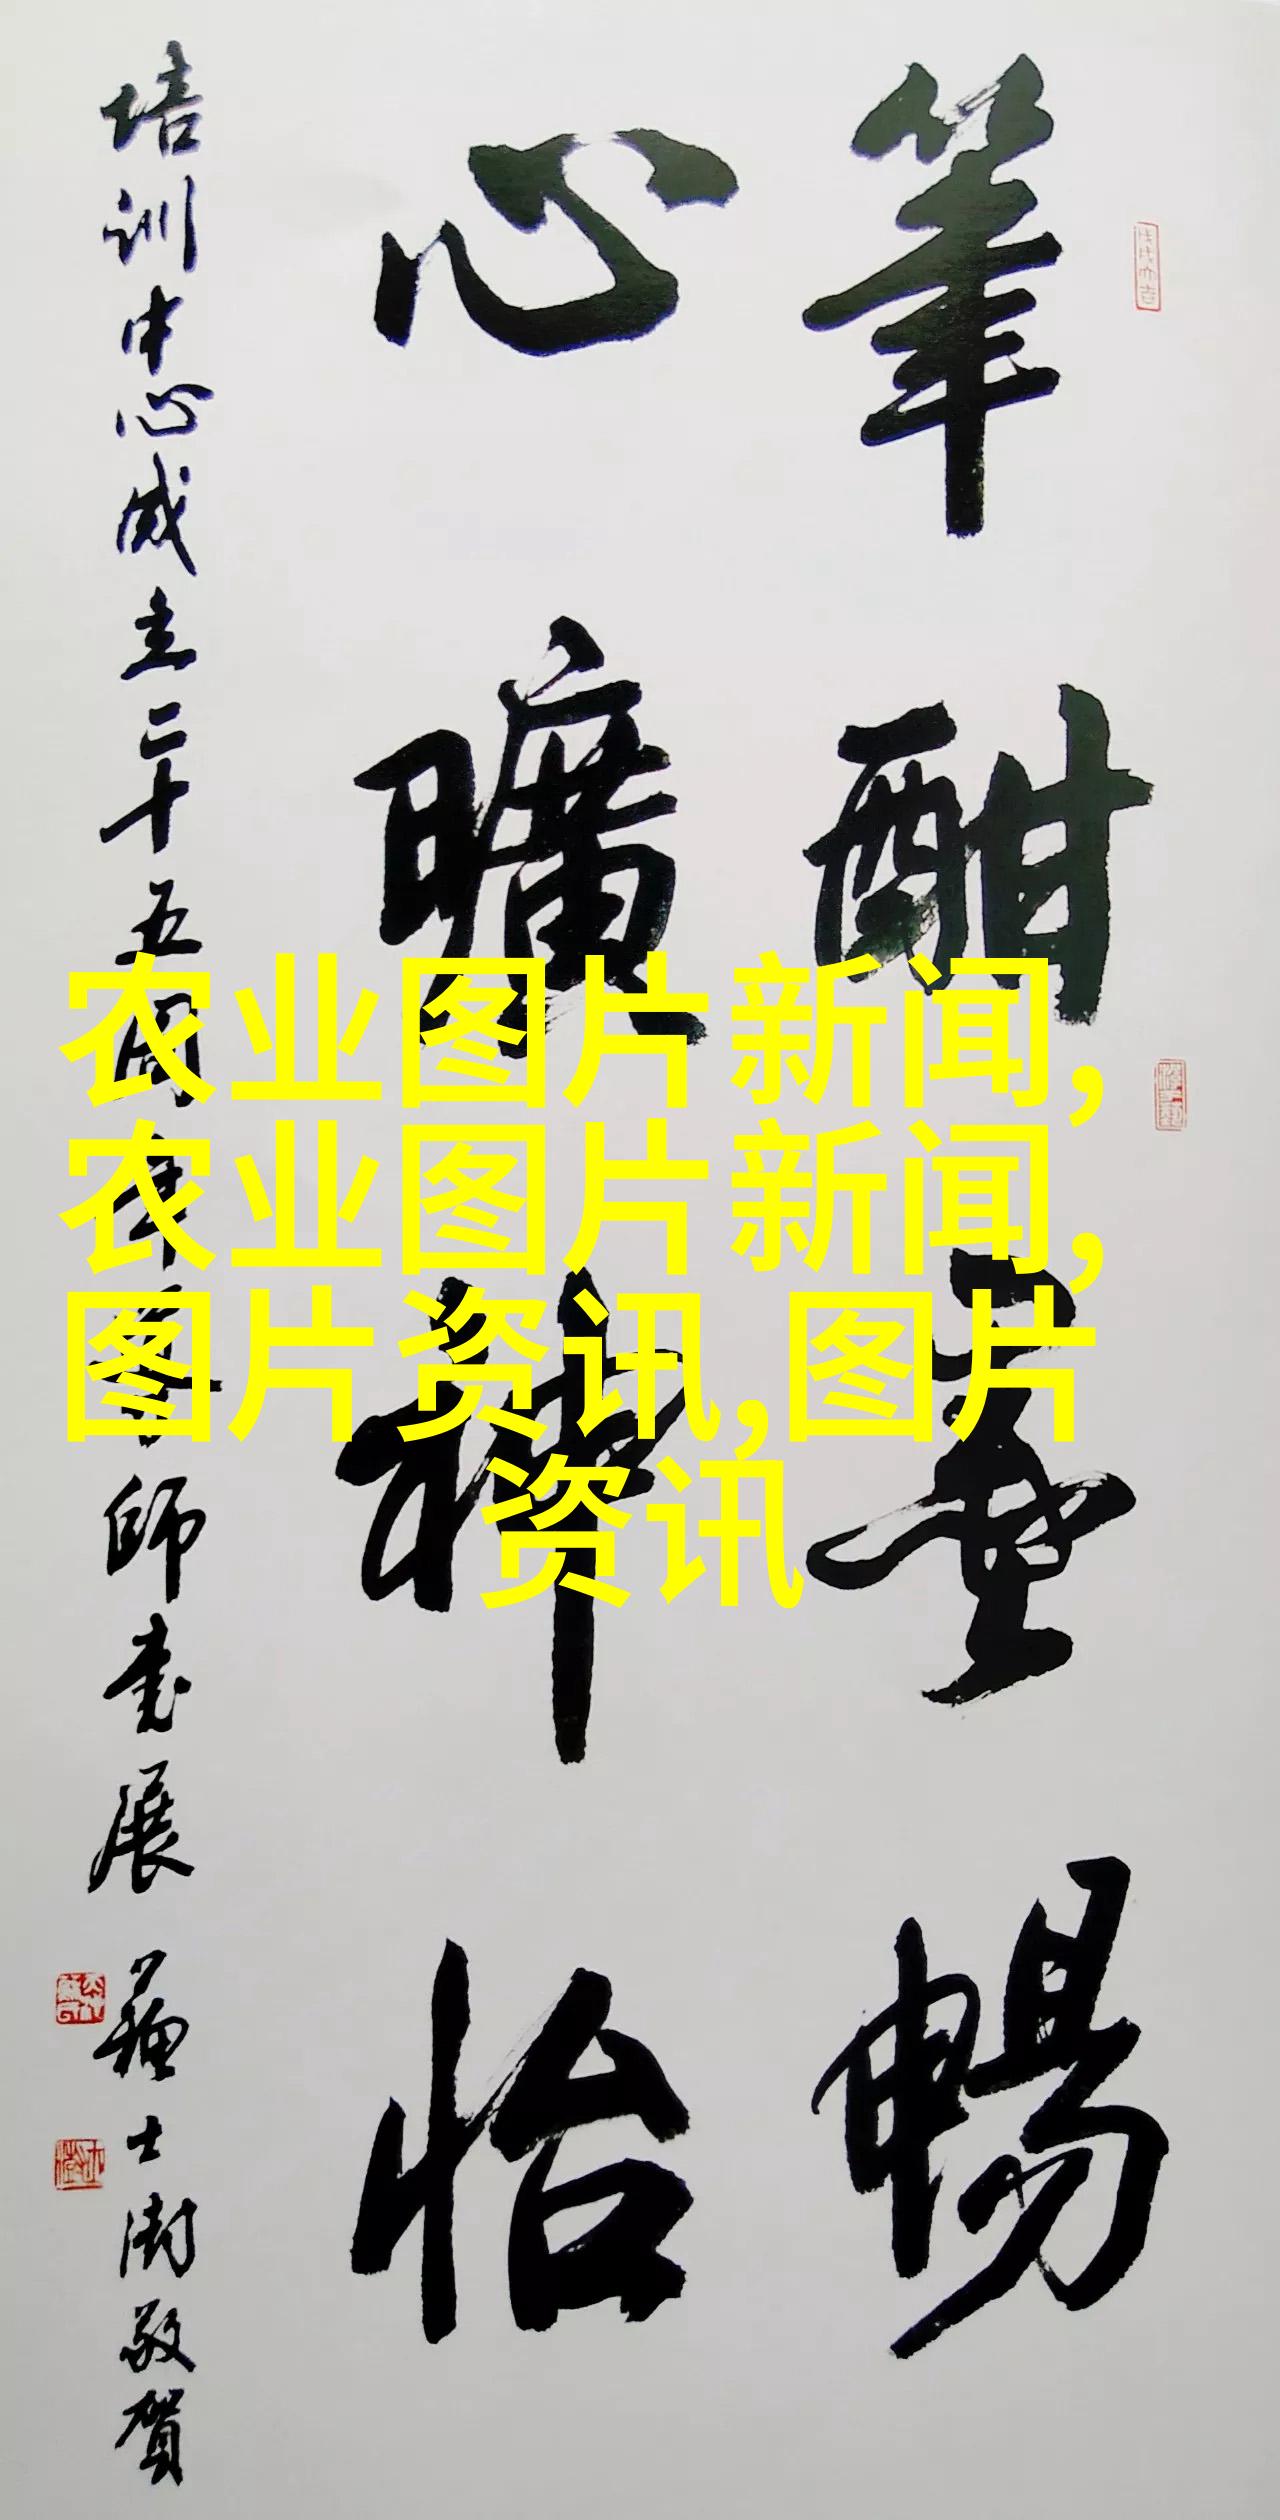 筆酣墨暢
心曠神怡
培訓中心成立二十五周年 師書展 蘇士澍敬賀
农业图片新闻,
农业图片新闻,
图片资讯,图片
资讯